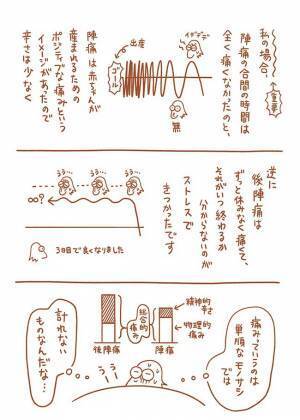 私の場合、
↑重要
陣痛の合間の時間は
全く痛くなかったのと、
陣痛は赤ちゃんが
産まれるための
ポジティブな痛みという
イメージがあったので
辛さは少なく
イデデデ
出産
ゴール
無
逆に
後陣痛は
ずっと休みなく痛くて、
それがいつ終わるか
分からないのが
ストレスで
きつかったです
うう…
うう…
うう…
∞?
3日目で良くなりました
痛みっていうのは
単純なモノサシ
では
精神的
辛さ
総合的
痛み
物理的
痛み
後陣痛
陣痛
計れない
ものなんだな…
うう…